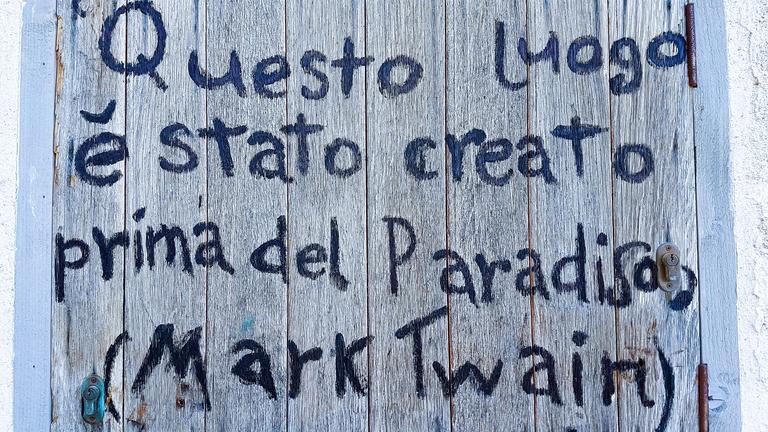 Questo luogo
è stato creato
prima del Paradiso,
(Mark Twain)